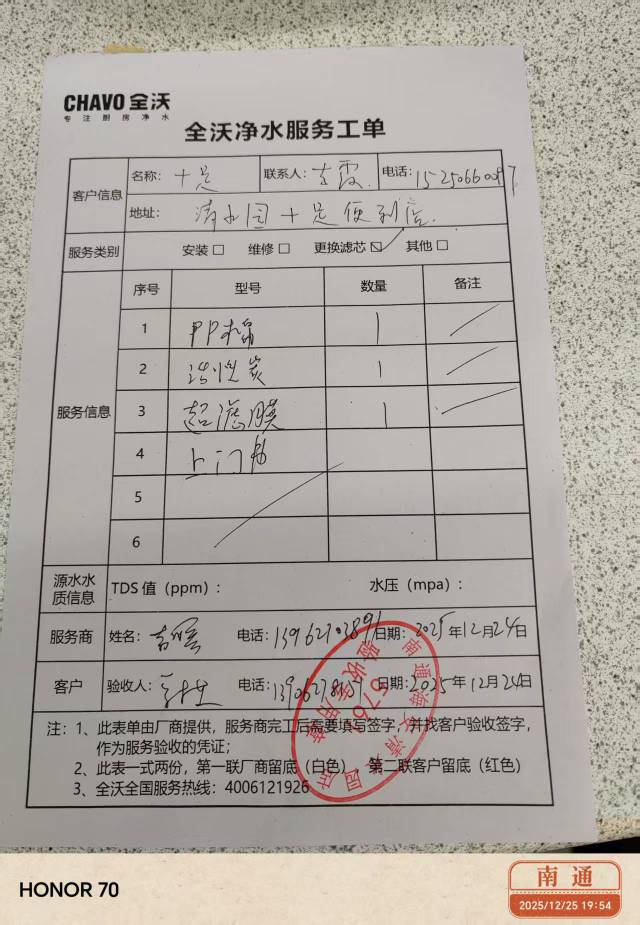 CHAVO 全沃
专注厨房净水
全沃净水服务工单
客户信息 名称：十足 联系人：吉霞 电话：15250660097
地址：清水园十足便利店
服务类别 安装□ 维修□ 更换滤芯☑ 其他□
服务信息 序号 型号 数量 备注
1 PP棉 1
2 活性炭 1
3 超滤膜 1
4 上门费
5
6
源水水质信息 TDS 值（ppm）： 水压（mpa）：
服务商 姓名： 电话：13962703891 日期：2025年12月24日
客户 验收人： 电话： 日期：2025年12月24日
南通海安清水园店
6761
验收专用章
注：1、此表单由厂商提供，服务商完工后需要填写签字，并找客户验收签字，
作为服务验收的凭证；
2、此表一式两份，第一联厂商留底（白色），第二联客户留底（红色）
3、全沃全国服务热线：4006121926
HONOR 70
南通
2025/12/25 19:54